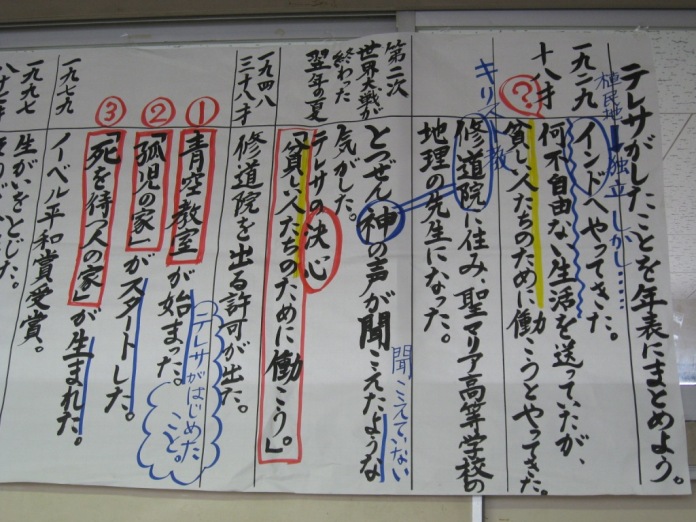 テレサがしたことを年表にまとめよう。
植民地→独立 しかし……
一九二九
十八才
インドへやってきた。
何不自由ない生活を送っていたが、
?
貧しい人たちのために働こうとやってきた。
キリスト教
修道院に住み、聖マリア高等学校の
地理の先生になった。
第二次
世界大戦が
終わった
翌年の夏
とつぜん神の声が聞こえたような
聞こえていない
気がした。
テレサの決心
「貧しい人たちのために働こう。」
一九四八
三十八才
修道院を出る許可が出た。
①
「青空教室」が始まった。
テレサがはじめた
こと。
②
「孤児の家」がスタートした。
③
「死を待つ人の家」が生まれた。
一九七九
ノーベル平和賞受賞。
一九九七
生がいをとじた。